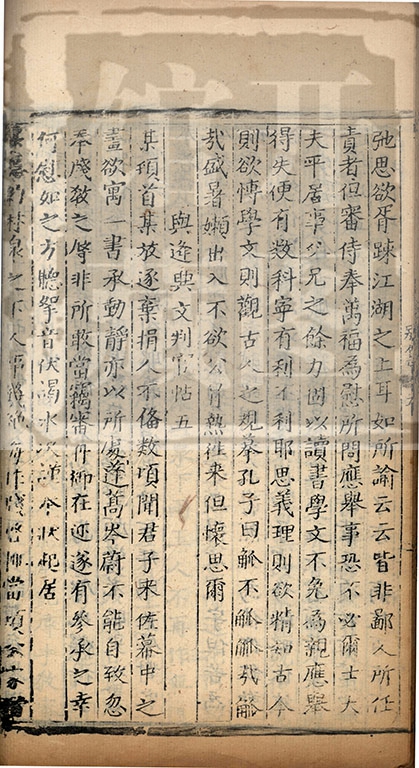 弛思欲胥踈江湖之上耳如所諭云云皆非鄙人所任
責者但審侍奉萬福為慰所問應舉事恐不必爾士大
夫平居事父兄之餘力固以讀書學文不免為親應舉
得失便有数科寧有利不利耶思義理則欲精知古今
則欲博學文則觀古人之規摹孔子曰觚不觚觚哉觚
哉盛暑嬾出入不欲公冒熱往来但懷思爾
與逢興文判官帖五
某頃首某放逐棄捐人不俻数頃聞君子来佐幕中之
畫欲寓一書承動静亦以所處蓬蒿岑蔚不能自致忽
奉牋教之辱非所敢當竊審舟檝在近遂有參承之幸
何慰如之方瞻挐音伏謁水次謹奉狀起居
之